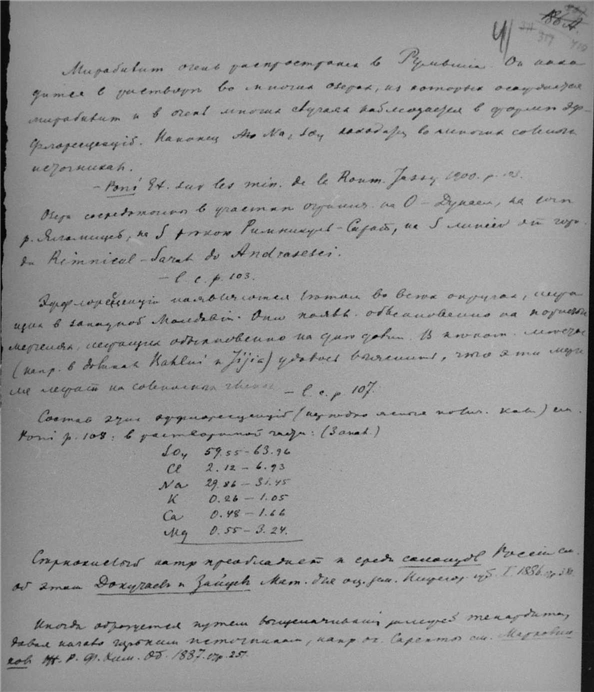 41
Мирабилит очень распространен в Румынiи. Он нахо
дится в растворѣ во многих озерах, из которых осаждается
мирабилит и в очень многих случаях наблюдается в формѣ эф
флоресценцiй. Наконец Na₂SO₄ находят во многих соленых
источниках.
– Poni Et. sur les min. de la Roum. Jassy 1900. p.
Озера сосредоточены в участкѣ огранич. на O – Дунаем, на
р. Яломицей, на S рекою Рымникул-Сарат, на S линiей от горо
да Rimnicul-Sarat до Andrasesci.
– l. c. p. 103.
Эффлоресценцiи появляются лѣтом во всѣх округах,
в западной Молдавiи. Они появл. обыкновенно на
мергелях, обыкновенно на днѣ долин. В
(напр. в долинах Bahlui и Jijia) удалось выяснить, что эти
лежат на соленосных – l. c. p. 107.
Состав этих эффлоресценцiй см.
Poni p. 108: в растворимой части: (3 анал.)
SO₄ 59.55 – 63.96
Cl 2.12 – 6.93
Na 29.86 – 31.45
K 0.26 – 1.05
Ca 0.48 – 1.66
Mg 0.55 – 3.24
Сѣрнокислый натр преобладает и среди солонцов Россiи см.
об этом Докучаев и Зайцев Мат. для оц. зем. Нижегор. губ. I. 1886.
Иногда образуется путем выщелачиванiя залежей тенардита,
давая начало горьким источникам, напр. ок. Сарепты см. Марковни
ков Ж. Р. Ф. Хим. Об. 1887. стр. 251.